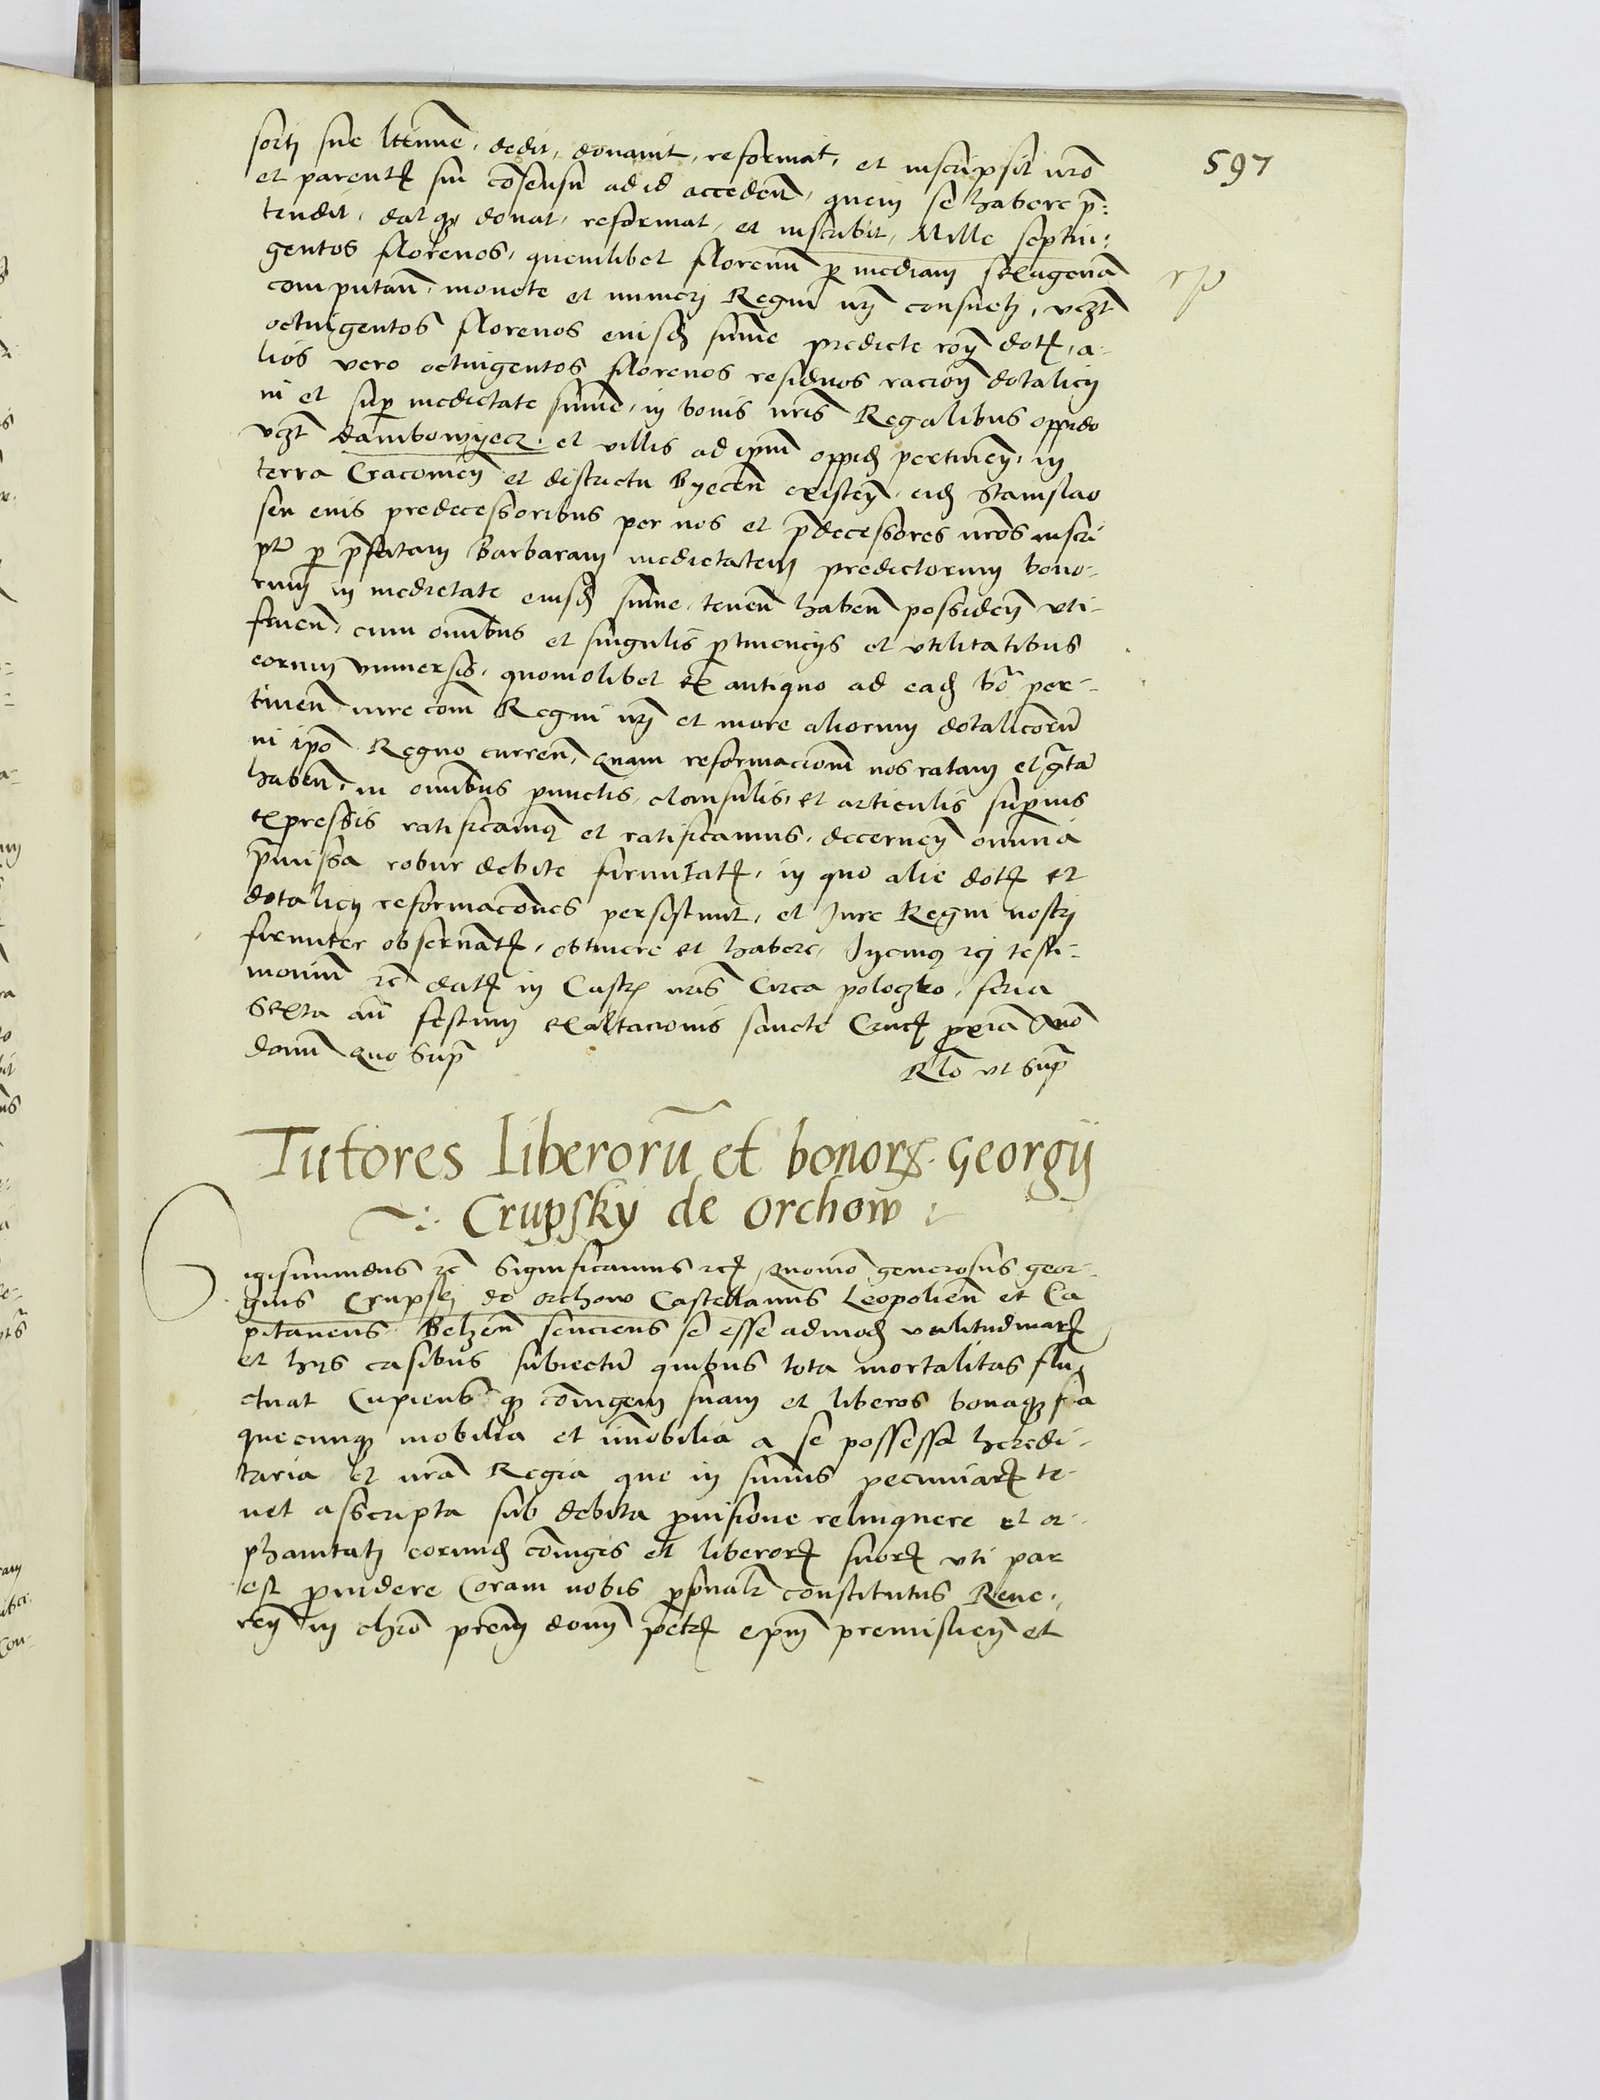 597
sorti sue l̃ttime, dedit, donavit, reformat, et inscripsit nr̃o
et parentꝭ sui cõsensu ad id acceden̄, quem se habere p̃:
tendit, dat qꝫ donat, reformat, et inscribit, Mille septin:
gentos florenos, quemlibet florenũ ꝑ mediam sexagenã
computan̄, monete et numeri Regni nr̃i consueti, vcꝫt
octingentos florenos eiusdẽ sum̃e predicte rõn̄ dotꝭ, a-
lios vero octingentos florenos residuos racion̄ dotalicii
in et suꝑ medietate sum̃e, in bonis nr̃is Regalibus oppido
vcꝫt dambowyecz, et villis ad ipm̃ oppidũ pertinen̄, in
terra Cracovien̄ et districtu Byecen̄ existen̄, eidẽ Stanislao
seu eius predecessoribus per nos et p̃decessores nr̃os inscri
pt̃ ꝑ p̃fatam Barbaram medietatem predictorum bono-
rum in medietate eiusdẽ sum̃e, tenen̄ haben̄ possiden̄ uti-
fruen̄, cum om̃ibus et singulis ꝑtinenciis et utilitatibus
eorum vniversis, quomolibet ex antiquo ad eadẽ bõ per-
tinen̄ iure com̃ Regni nr̃i et more aliorum dotalicorũ
in ipõ Regno curren̄, Quam reformacionẽ nos ratam et g̃tã
haben̄, in om̃ibus punctis, clausulis, et articulis superius
expressis ratificamꝰ et ratificamus, decernen̄ omnia
p̃missa robur debite firmitatꝭ, in quo alie dotꝭ et
dotalicii reformacões persistunt, et Jure Regni nostri
firmiter observãtꝭ, obtinere et habere, In cuiꝰ rei testi-
moniũ zc̃ datꝭ in Castrꝭ nr̃is Circa poloczko, feria
Sexta añ festum exaltacionis sancte Crucꝭ proxĩa Anõ
domĩ Quo Supᷓ
Rl̃o ut supᷓ
Tutores liberorũ et bonorꝝ Georgij
Crupsky de orchow
Sigismundus zc̃ Significamus zcꝭ, Quomõ generosus geor-
gius Crupski de orchow Castellanus Leopolien̄ et Ca
pitaneus Belzen̄ senciens se esse admodũ valitudinariũ
et hiis casibus subiectũ quibus tota mortalitas flu
ctuat Cupiens qꝫ cõiugem suam et liberos bonaqꝫ sua
quecunqꝫ mobilia et im̃obilia a se possessa heredi-
taria et nr̃a Regia que in sum̃is pecuniarꝭ te-
net asscripta sub debita provisione relinquere et or-
phanitati eorundẽ cõiugis et liberorꝭ suorꝭ uti par
est providere Coram nobis ꝑsonalr̃ constitutus Reve-
ren̄ in chr̃o prẽm domĩ petrꝭ ep̃m premislien̄ et